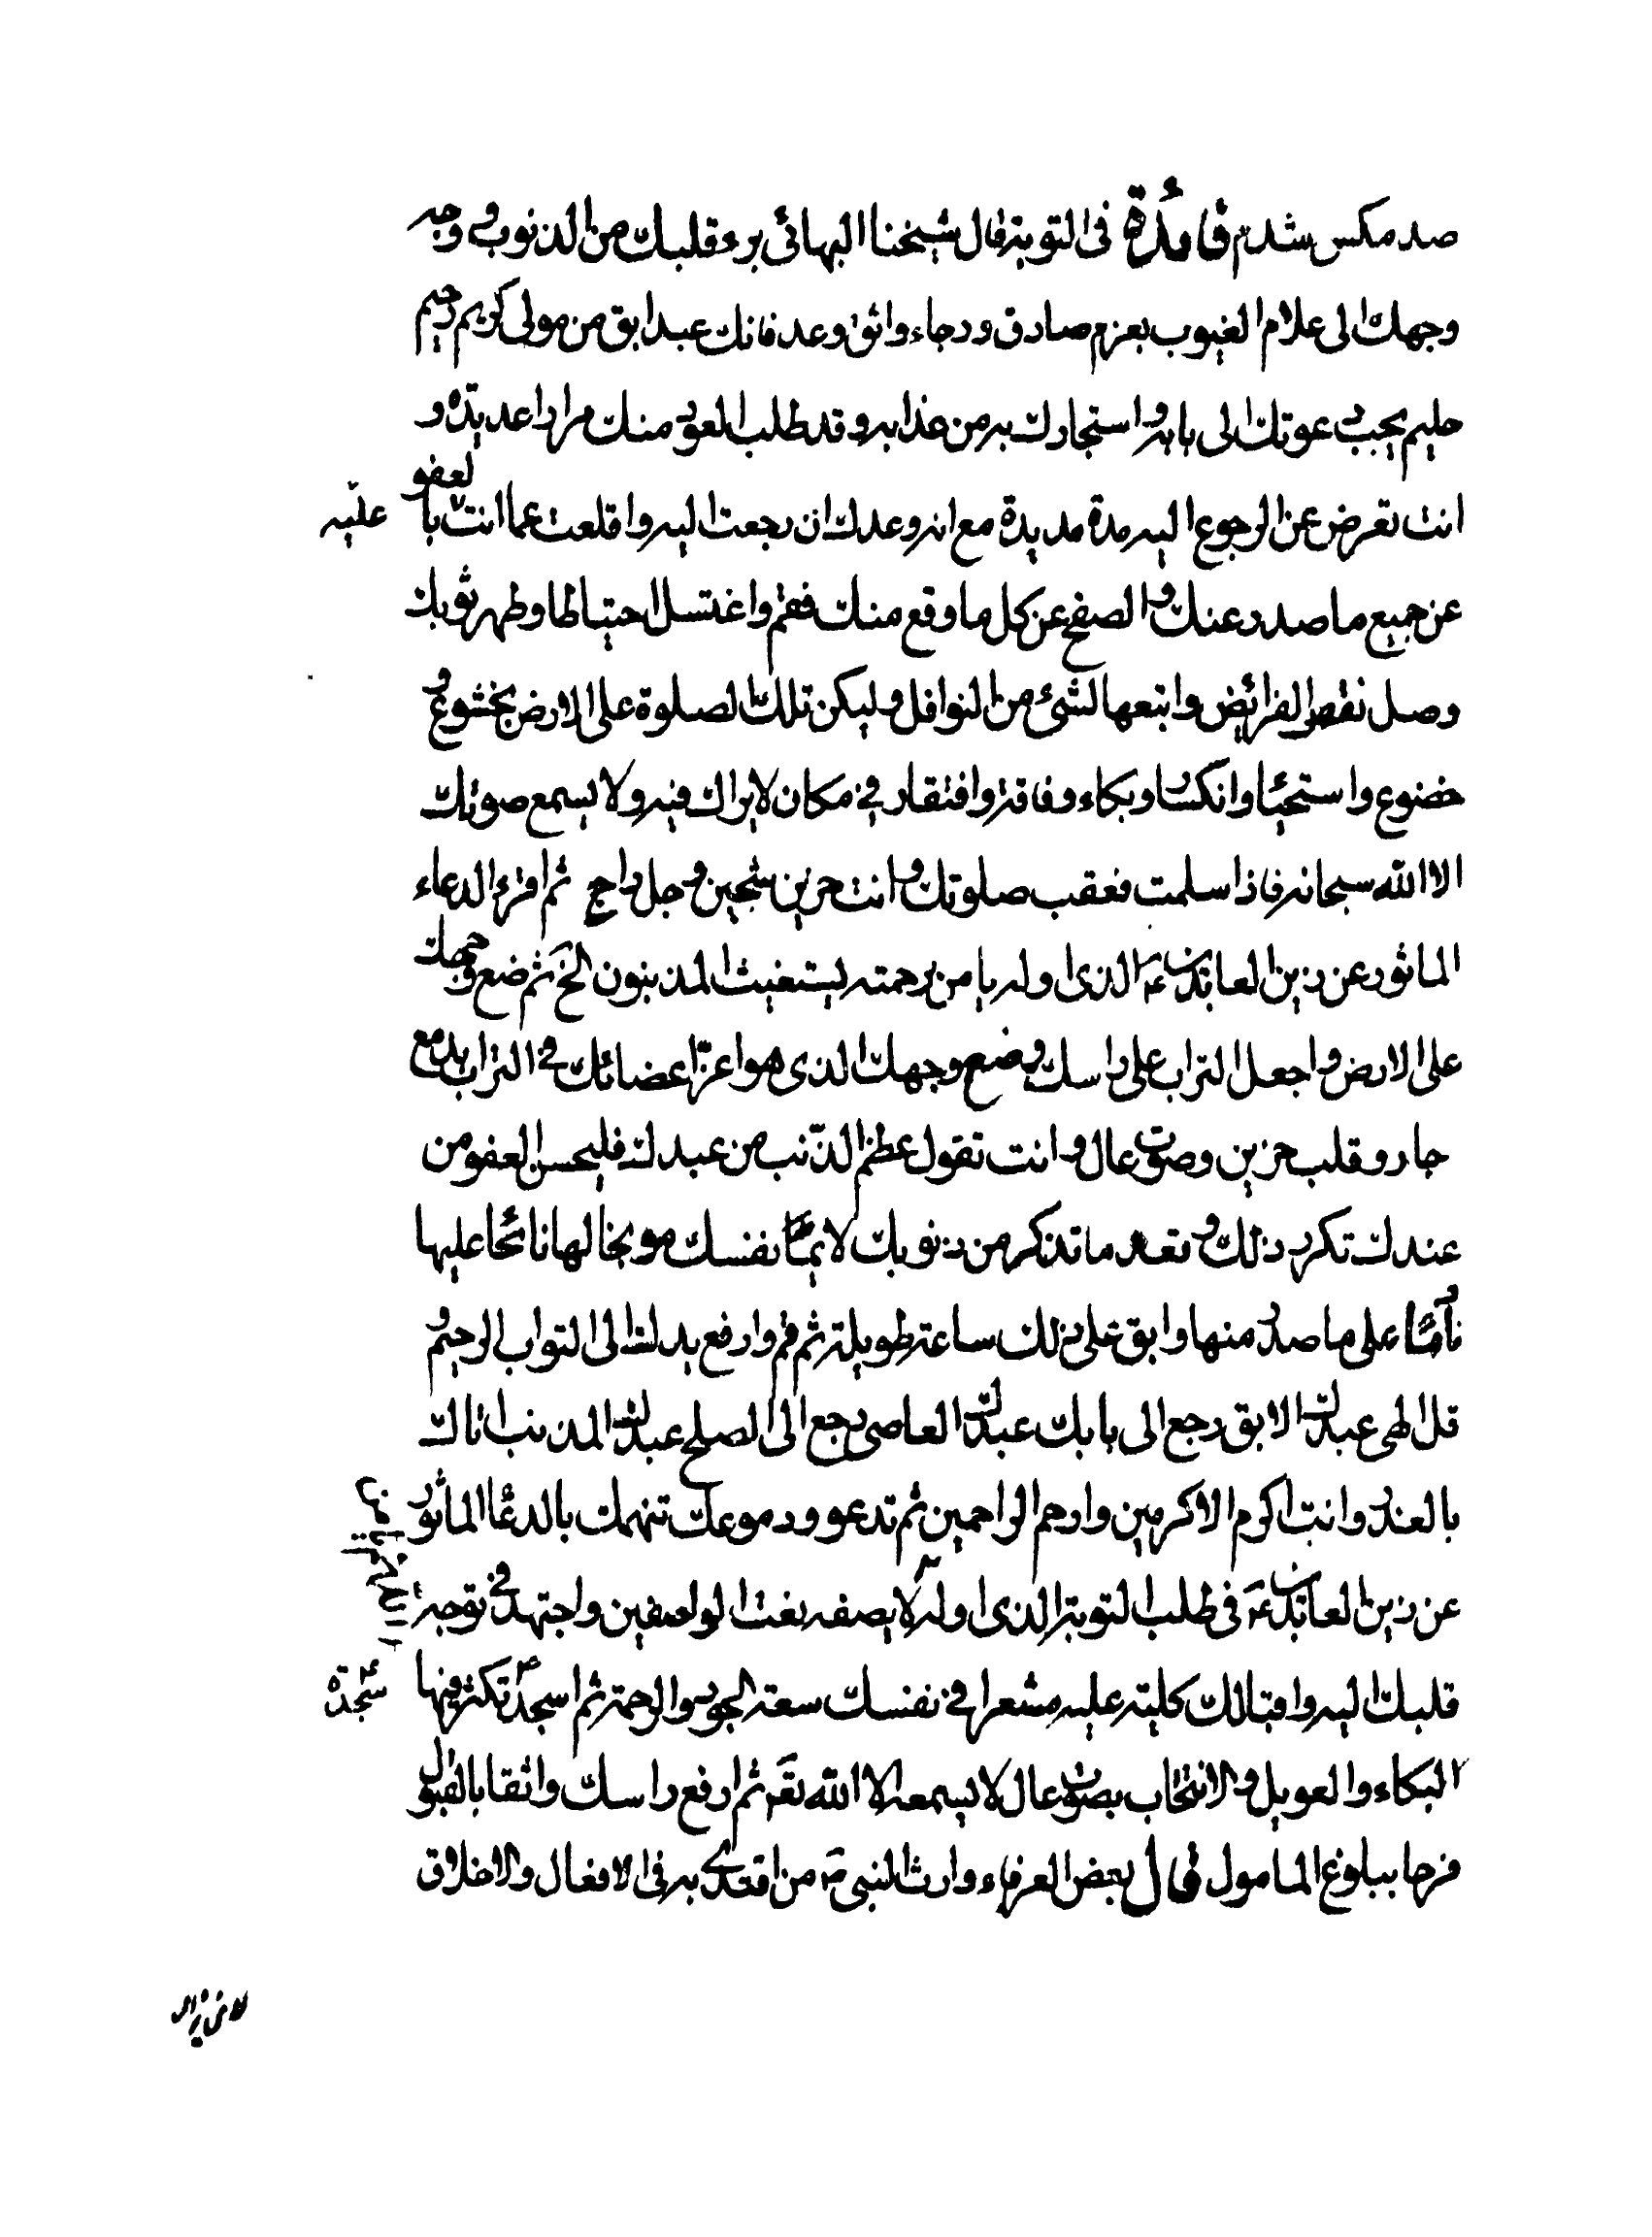 صد مكس شدم فائدة فى التوبة قال شيخنا البهائى برء قلبك من الذنوب ووجه
وجهك الى علام الغيوب بعزم صادق ورجاء واثق وعد فانك عبد ابق من مولى كريم رحيم
حليم يجب عوتك الى بابه واستجارك به من عذابه وقد طلب العود منك مرارا عديدة و
انت تعرض عن الرجوع اليه مدة مديدة مع انه وعدك ان رجعت اليه واقلعت عما انت بالعفو
عليه
عن جميع ما صدر عنك والصفح عن كل ما وقع منك فقم واغتسل احتياطا وطهر ثوبك
وصل الفرائض واتبعها لشئ من النوافل وليكن تلك الصلوة على الارض بخشوع و
خضوع واستحيا وانكسار وبكاء وفاقة وافتقار فى مكان لا يراك فيه ولا يسمع صوتك
الا الله سبحانه فاذا سلمت فعقب صلوتك وانت حزين شجين وجل راج ثم اقرء الدعاء
الماثور عن زين العابدين ع الذى اوله يا من برحمته يستغيث المذنبون الخ ثم ضع وجهك
على الارض واجعل التراب على راسك وضع وجهك الذى هو اعز اعضائك فى التراب بدمع
جار وقلب حزين وصوت عال وانت تقول عظم الذنب من عبدك فليحسن العفو من
عندك تكرر ذلك وتعد ما تذكر من ذنوبك لائما نفسك موبخا لها نائحا عليها
نادما على ما صدر منها وابق على ذلك ساعة طويلة ثم قم وارفع يدك الى التواب الرحيم و
قل الهى عبدك الابق رجع الى بابك عبدك العاصى رجع الى الصلح عبدك المذنب اتاك
بالعذر وانت اكرم الاكرمين وارحم الراحمين ثم تدعو ودموعك تنهمل بالدعا الماثور
عن زين العابدين ع فى طلب التوبة الذى اوله لا يصفه نعت الواصفين واجتهد فى توجه
قلبك اليه واقبالك كليته عليه مشعرا فى نفسك سعة الجود والرحمة ثم اسجد تكثر فيها
سجدة
البكاء والعويل والانتحاب بصوت عال لا يسمعه الا الله تع ثم ارفع راسك واثقا بالقبول
فرحا ببلوغ المامول قال بعض العرفاء وارث النبى ص من اقتدى به فى الافعال والاخلاق